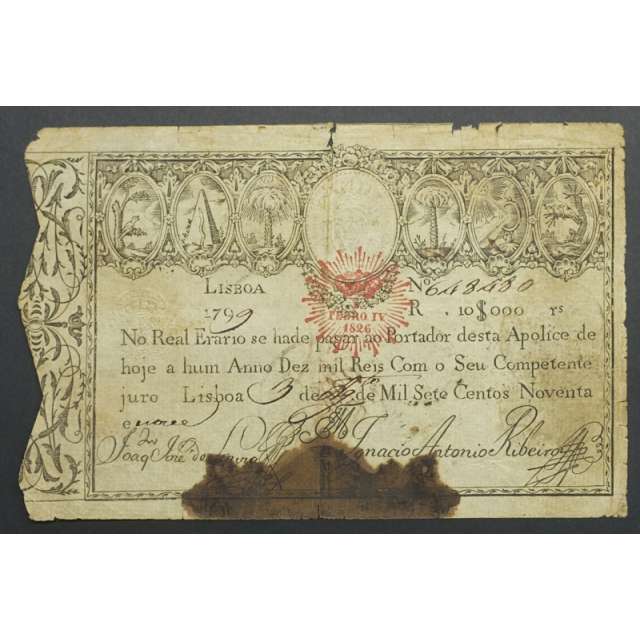 LISBOA
Nº 643430
1799
PEDRO IV
1826
R 10$000 rs
No Real Erario se hade pagar ao Portador desta Apolice de
hoje a hum Anno Dez mil Reis Com o Seu Competente
juro Lisboa 3 de de Mil Sete Centos Noventa
e nove
Joaq Joze Ignacio Antonio Ribeiro